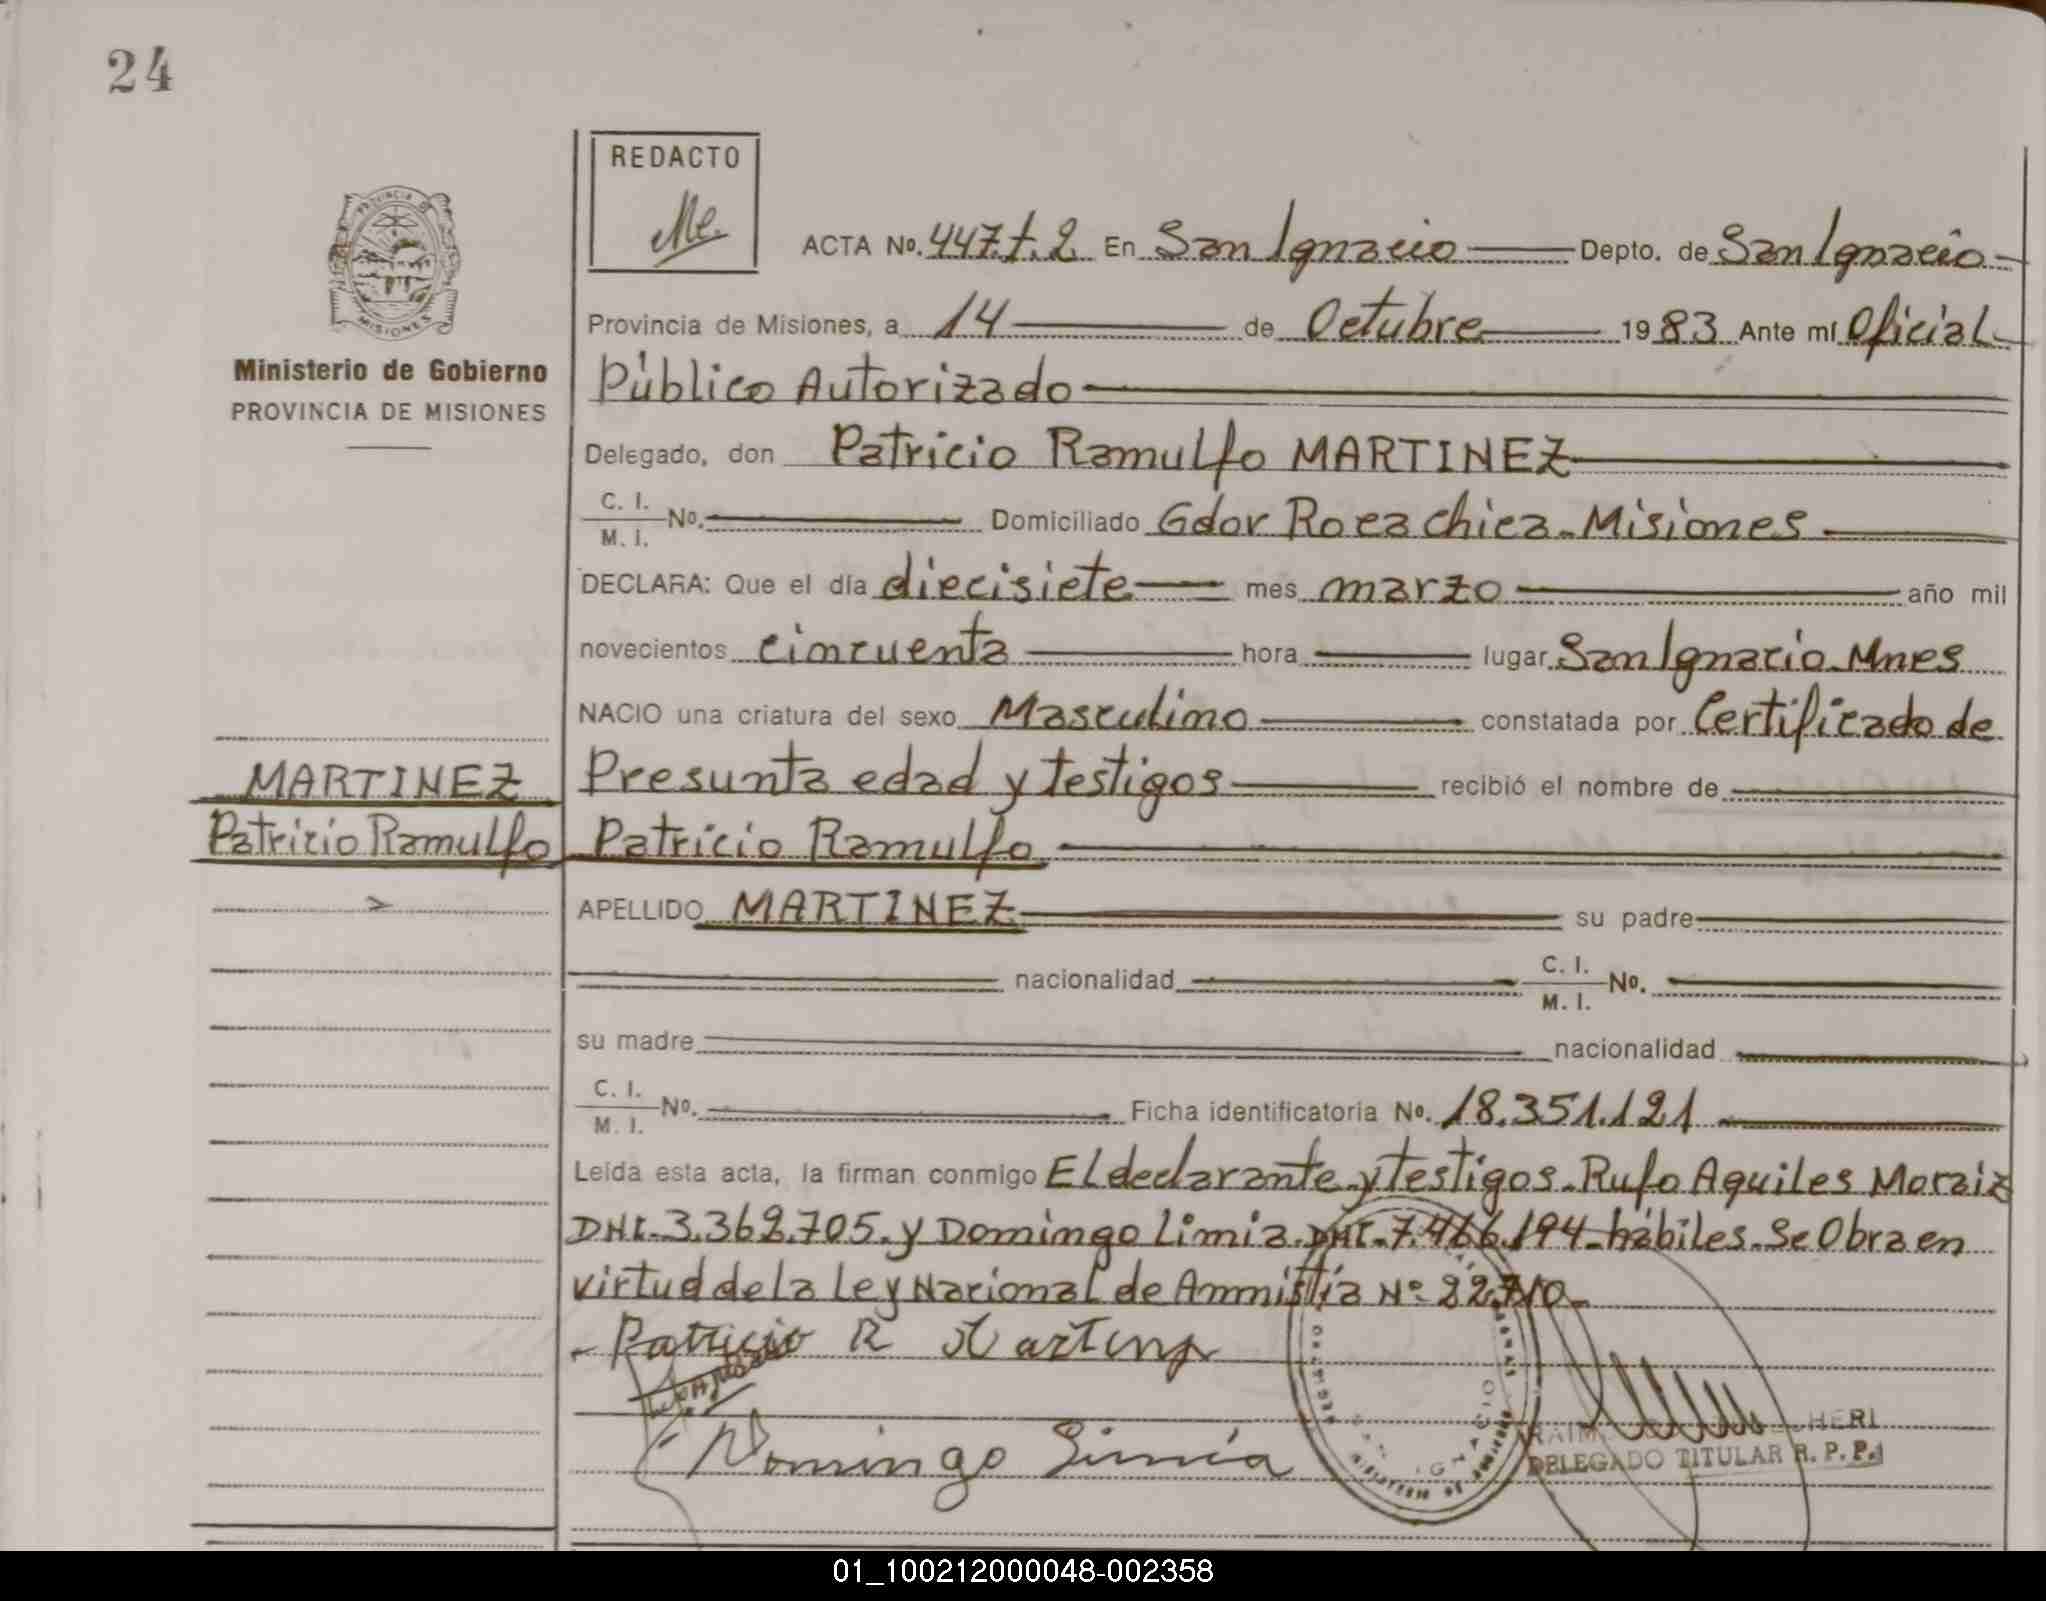 24
REDACTO
Me.
PROVINCIA DE
MISIONES
Ministerio de Gobierno
PROVINCIA DE MISIONES
ACTA Nº. 447.t.2 En San Ignacio Depto. de San Ignacio
Provincia de Misiones, a 14 de Octubre 1983 Ante mí Oficial
Público Autorizado
Delegado, don Patricio Ramulfo MARTINEZ
C. I.
M. I. Nº. Domiciliado Gdor Roca chica. Misiones
DECLARA: Que el día diecisiete mes marzo año mil
novecientos cincuenta hora lugar San Ignacio. Mnes
NACIO una criatura del sexo Masculino constatada por Certificado de
MARTINEZ
Presunta edad y testigos recibió el nombre de
Patricio Ramulfo
Patricio Ramulfo
APELLIDO MARTINEZ su padre
nacionalidad C. I.
M. I. Nº.
su madre nacionalidad
C. I.
M. I. Nº. Ficha identificatoria Nº. 18.351.121
Leída esta acta, la firman conmigo El declarante y testigos. Rufo Aquiles Moraiz
DNI. 3.362.705. y Domingo Limia. DNI. 7.466.194 hábiles. Se Obra en
virtud de la Ley Nacional de Amnistía Nº 22.710.
Patricio R Martinez
Domingo Limia
HERI
DELEGADO TITULAR R. P. P.
01_100212000048-002358